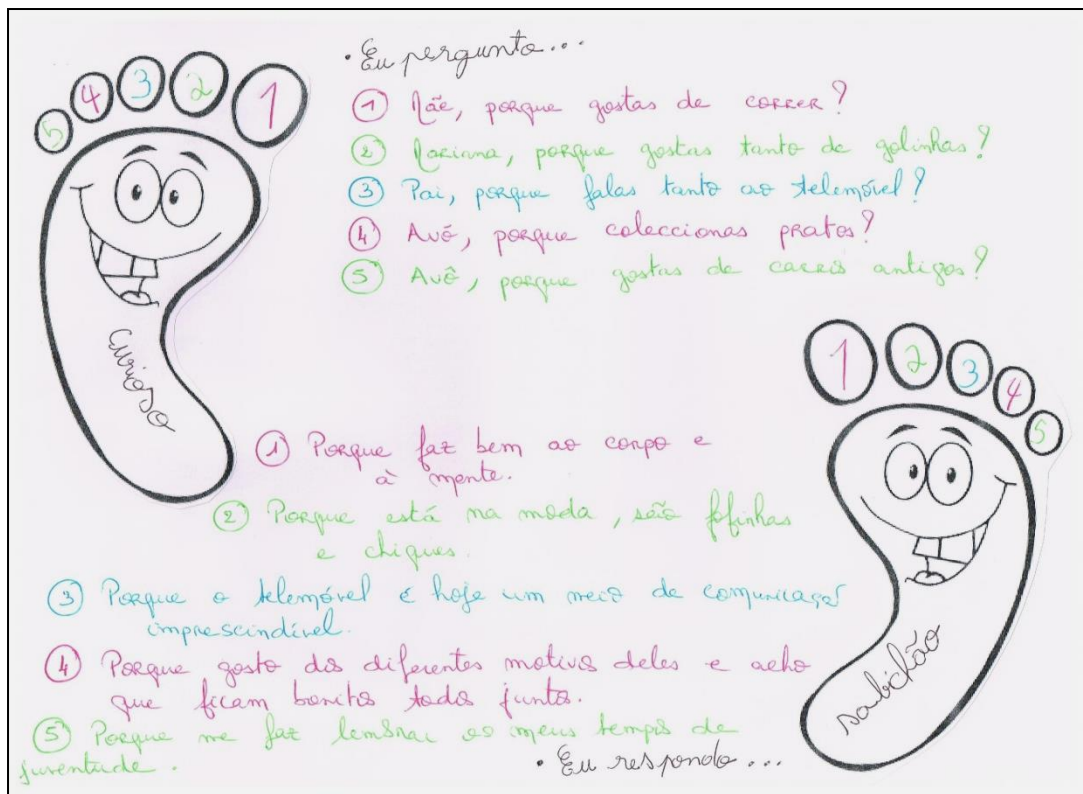 • Eu pergunto...
5 4 3 2 1
① Mãe, porque gostas de correr?
② Mariana, porque gostas tanto de golinhas?
③ Pai, porque falas tanto ao telemóvel?
④ Avó, porque coleccionas pratos?
⑤ Avô, porque gostas de carris antigos?
Curioso
1 2 3 4 5
① Porque faz bem ao corpo e
à mente.
② Porque está na moda, são fofinhas
e chiques.
③ Porque o telemóvel é hoje um meio de comunicaçar
imprescindível.
④ Porque gosto dos diferentes motivos deles e acho
que ficam bonitos todos juntos.
⑤ Porque me faz lembrar os meus tempos de
juventude.
sabichão
• Eu respondo...